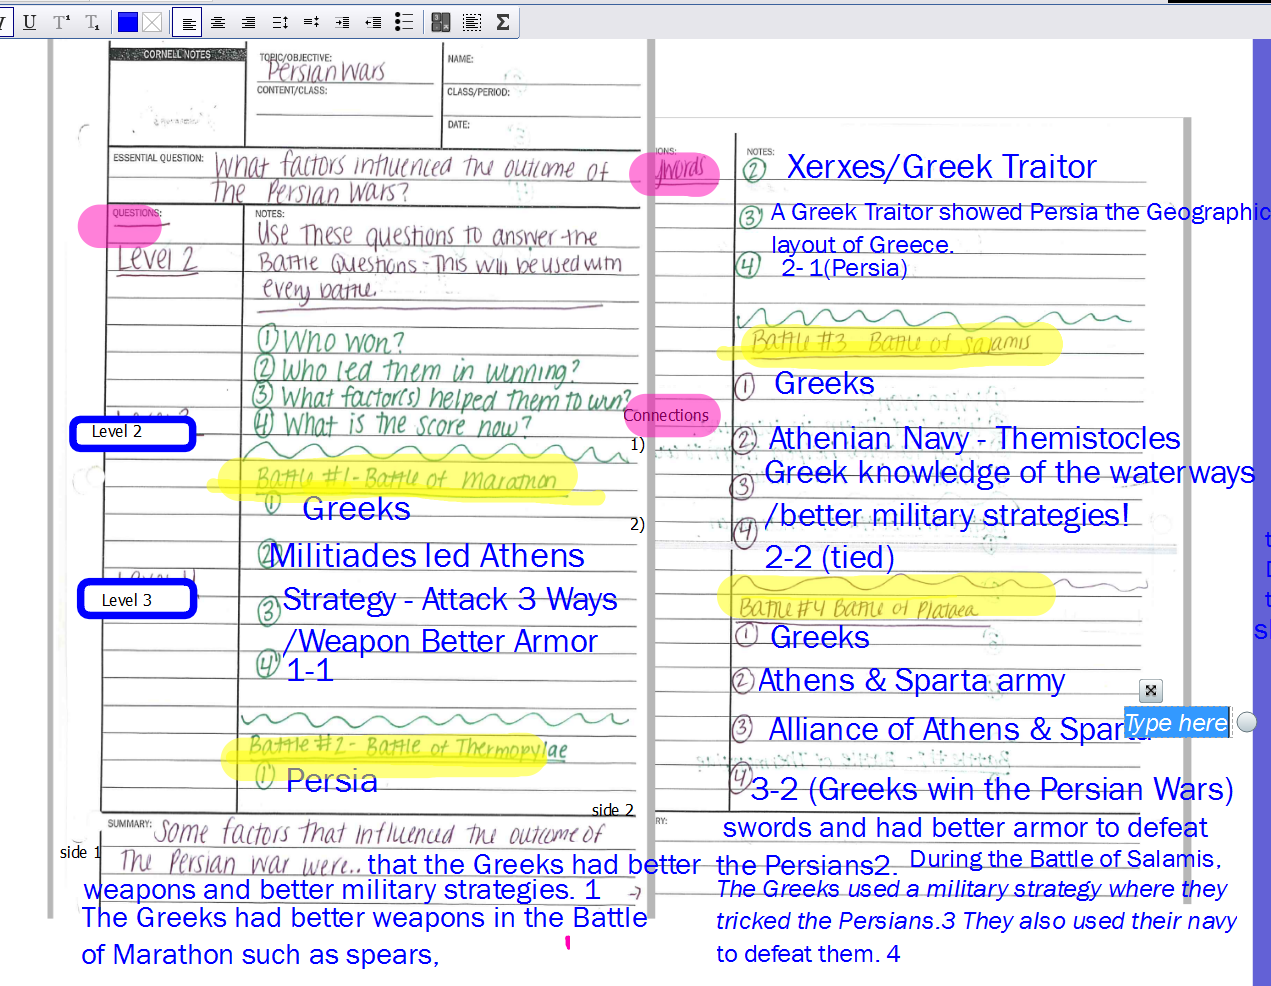 CORNELL NOTES
TOPIC/OBJECTIVE:
Persian Wars
CONTENT/CLASS:
NAME:
CLASS/PERIOD:
DATE:
ESSENTIAL QUESTION: What factors influenced the outcome of
the Persian Wars?
QUESTIONS:
Level 2
NOTES:
Use these questions to answer the
Battle Questions - This will be used with
every battle.
① Who won?
② Who led them in winning?
③ What factor(s) helped them to win?
④ What is the score now?
Level 2
Battle #1 - Battle of Marathon
① Greeks
② Militiades led Athens
Level 3
③ Strategy - Attack 3 Ways
/Weapon Better Armor
④ 1-1
Battle #2 - Battle of Thermopylae
① Persia
side 2
SUMMARY: Some factors that influenced the outcome of
side 1
the Persian War were.. that the Greeks had better
weapons and better military strategies. 1
The Greeks had better weapons in the Battle
of Marathon such as spears,
IONS:
ywords
NOTES:
② Xerxes/Greek Traitor
③ A Greek Traitor showed Persia the Geographic
layout of Greece.
④ 2- 1(Persia)
Battle #3 Battle of Salamis
① Greeks
Connections
1)
② Athenian Navy - Themistocles
③ Greek knowledge of the waterways
2)
④ /better military strategies!
2-2 (tied)
Battle #4 Battle of Plataea
① Greeks
② Athens & Sparta army
③ Alliance of Athens & Spart
Type here
④ 3-2 (Greeks win the Persian Wars)
RY:
swords and had better armor to defeat
the Persians2. During the Battle of Salamis,
The Greeks used a military strategy where they
tricked the Persians.3 They also used their navy
to defeat them. 4